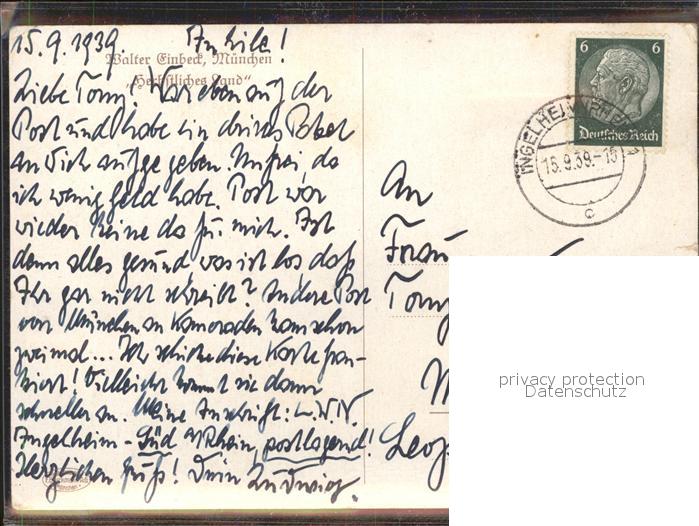 15.9.1939. In Eile!
Walter Einbeck, München
„Herbstliches Land"
Liebe Tony! War eben auf der
Post und habe ein drittes Paket
an Dich aufgegeben. Unfrei, da
ich wenig Geld habe. Post war
wieder keine da für mich. Ist
denn alles gesund, was ist los daß
Ihr gar nicht schreibt? Andere Post
von München an Kameraden kam schon
zweimal... Ich schicke diese Karte fran-
kiert! Vielleicht kommt sie dann
schneller an. Meine Anschrift: L.W.N.
Ingelheim - Süd a/Rhein, postlagernd!
Herzlichen Gruß! Dein Ludwig.
6 6
Deutsches Reich
INGELHEIM
15.9.39.-15
c
An
Frau
Tony
M
Leop
privacy protection
Datenschutz